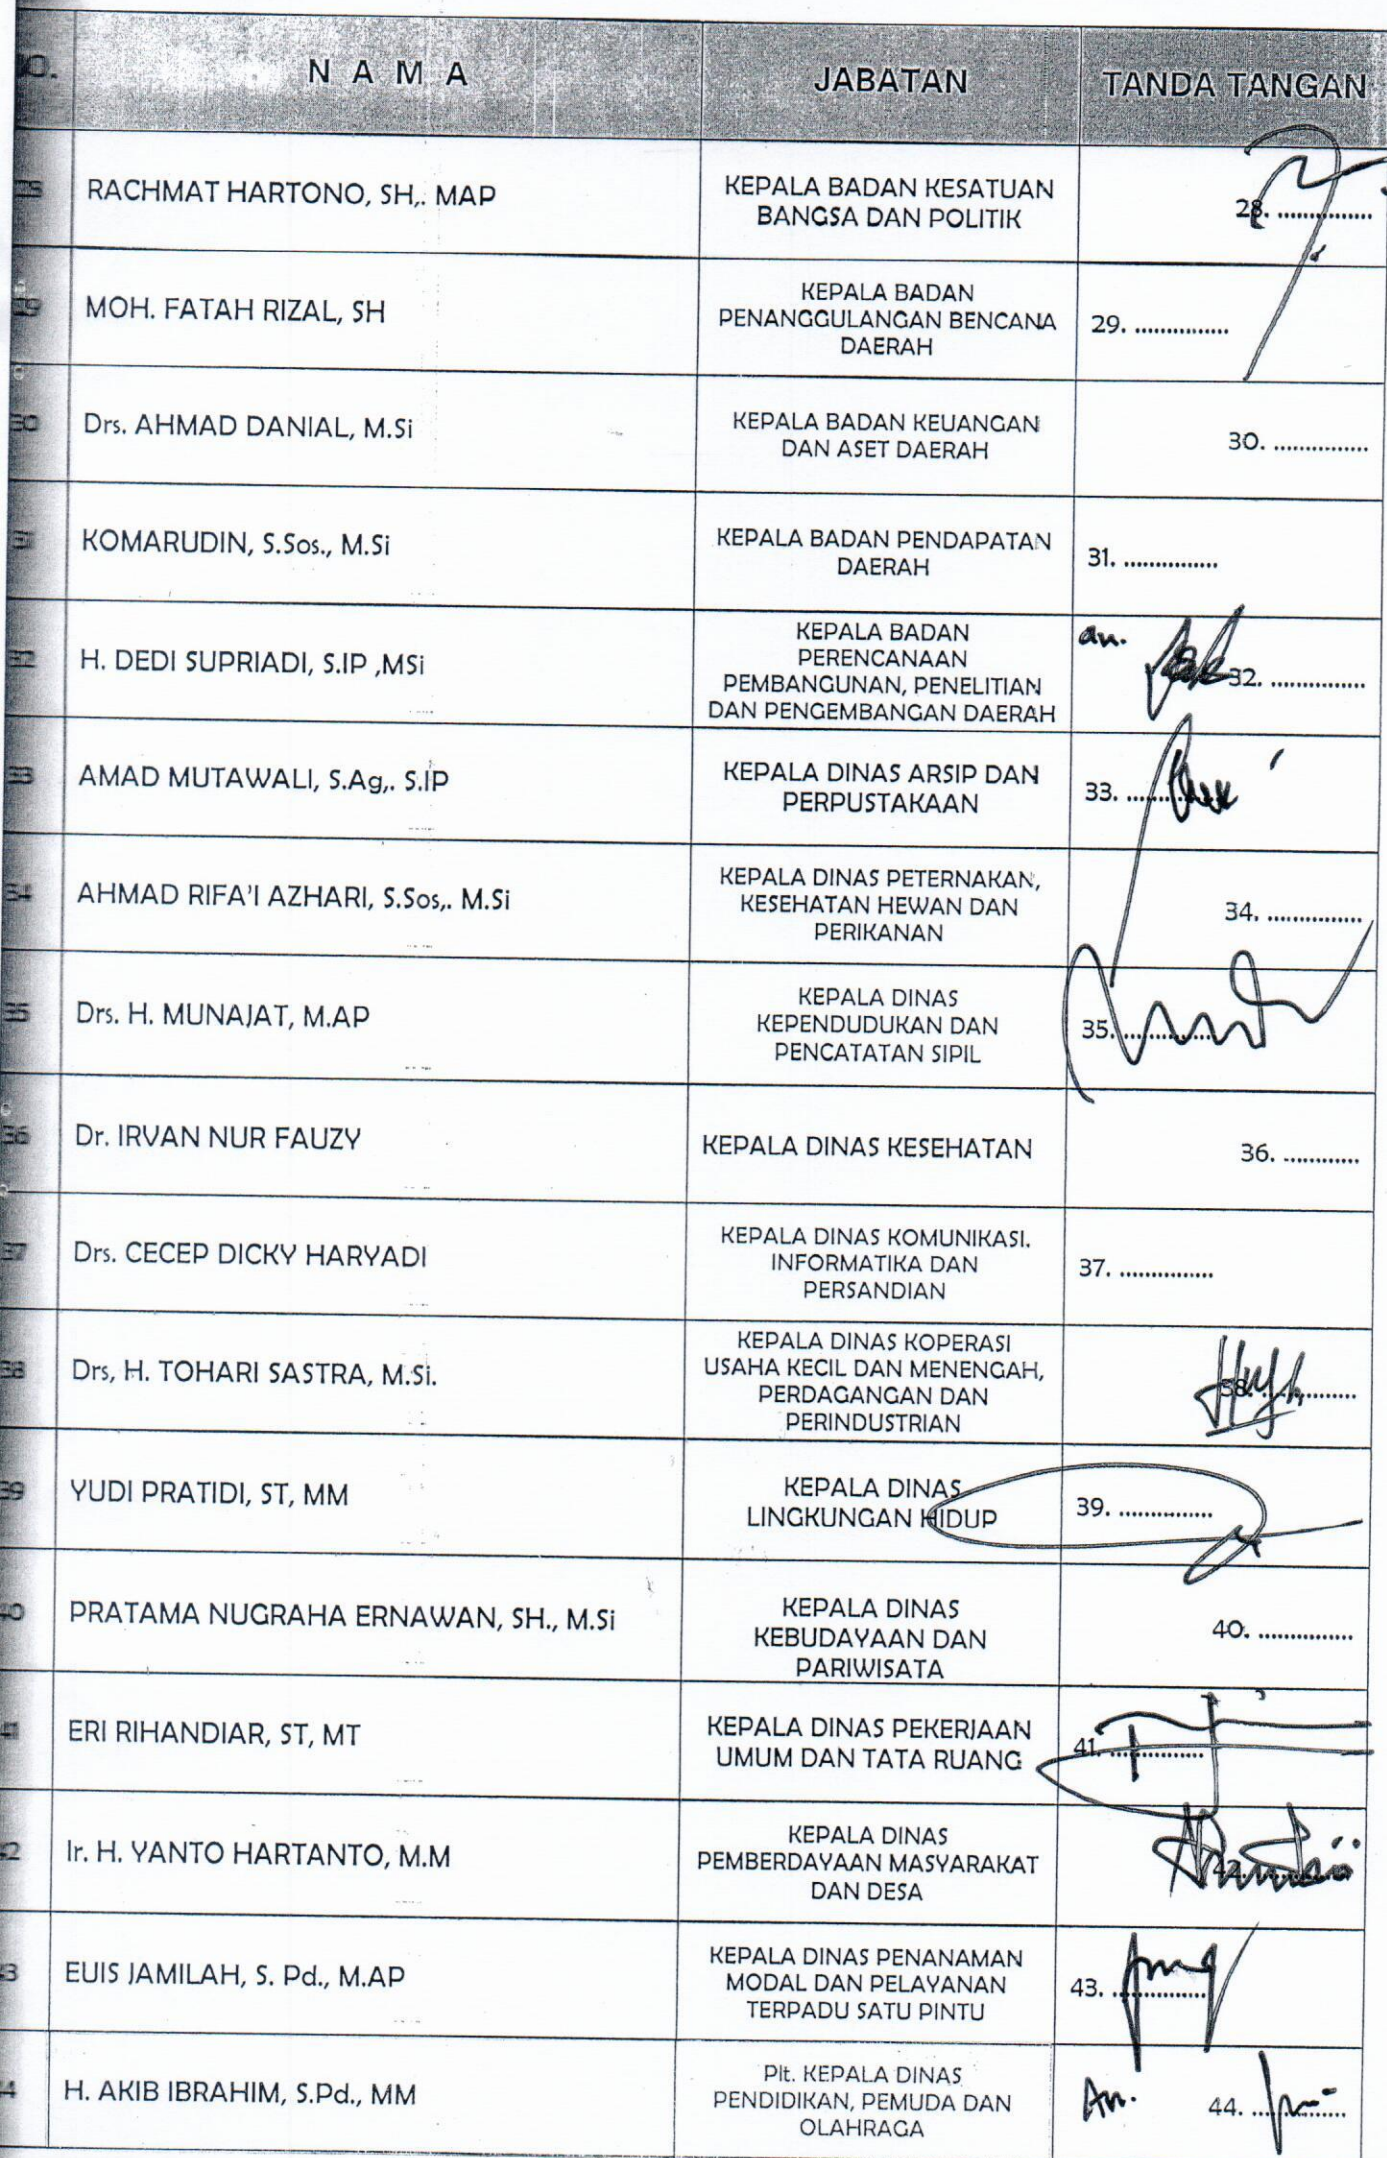 NO. N A M A JABATAN TANDA TANGAN
28 RACHMAT HARTONO, SH,. MAP KEPALA BADAN KESATUAN
BANGSA DAN POLITIK 28. ...............
29 MOH. FATAH RIZAL, SH KEPALA BADAN
PENANGGULANGAN BENCANA
DAERAH 29. ...............
30 Drs. AHMAD DANIAL, M.Si KEPALA BADAN KEUANGAN
DAN ASET DAERAH 30. ...............
31 KOMARUDIN, S.Sos., M.Si KEPALA BADAN PENDAPATAN
DAERAH 31. ...............
32 H. DEDI SUPRIADI, S.IP ,MSi KEPALA BADAN
PERENCANAAN
PEMBANGUNAN, PENELITIAN
DAN PENGEMBANGAN DAERAH an. 32. ...............
33 AMAD MUTAWALI, S.Ag,. S.IP KEPALA DINAS ARSIP DAN
PERPUSTAKAAN 33. ...............
34 AHMAD RIFA'I AZHARI, S.Sos,. M.Si KEPALA DINAS PETERNAKAN,
KESEHATAN HEWAN DAN
PERIKANAN 34. ...............
35 Drs. H. MUNAJAT, M.AP KEPALA DINAS
KEPENDUDUKAN DAN
PENCATATAN SIPIL 35. ...............
36 Dr. IRVAN NUR FAUZY KEPALA DINAS KESEHATAN 36. ............
37 Drs. CECEP DICKY HARYADI KEPALA DINAS KOMUNIKASI.
INFORMATIKA DAN
PERSANDIAN 37. ...............
38 Drs, H. TOHARI SASTRA, M.Si. KEPALA DINAS KOPERASI
USAHA KECIL DAN MENENGAH,
PERDAGANGAN DAN
PERINDUSTRIAN 38. ...............
39 YUDI PRATIDI, ST, MM KEPALA DINAS
LINGKUNGAN HIDUP 39. ...............
40 PRATAMA NUGRAHA ERNAWAN, SH., M.Si KEPALA DINAS
KEBUDAYAAN DAN
PARIWISATA 40. ...............
41 ERI RIHANDIAR, ST, MT KEPALA DINAS PEKERJAAN
UMUM DAN TATA RUANG 41. ...............
42 Ir. H. YANTO HARTANTO, M.M KEPALA DINAS
PEMBERDAYAAN MASYARAKAT
DAN DESA 42. ...............
43 EUIS JAMILAH, S. Pd., M.AP KEPALA DINAS PENANAMAN
MODAL DAN PELAYANAN
TERPADU SATU PINTU 43. ...............
44 H. AKIB IBRAHIM, S.Pd., MM Plt. KEPALA DINAS
PENDIDIKAN, PEMUDA DAN
OLAHRAGA An. 44. ...............